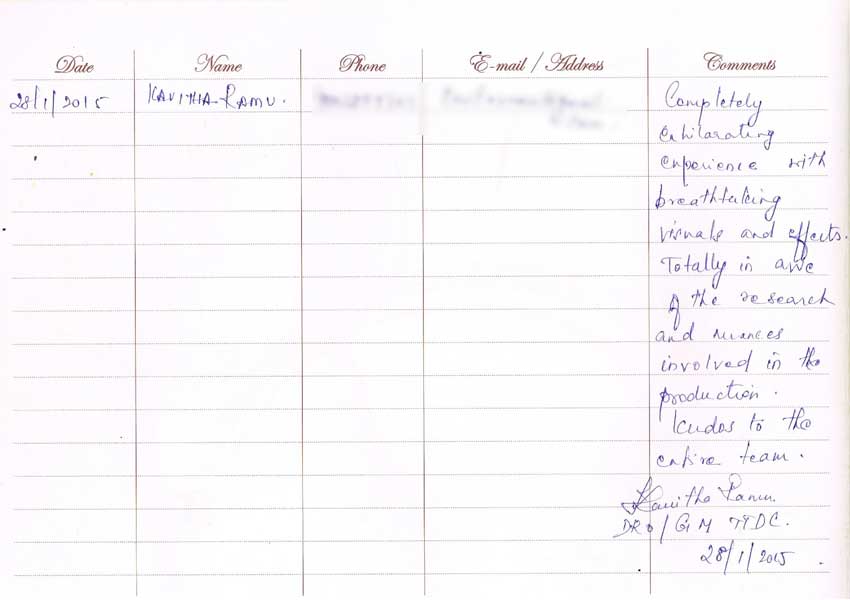 Date Name Phone E-mail / Address Comments
28/1/2015 KAVITHA RAMU. Completely
exhilarating
experience with
breathtaking
visuals and effects.
Totally in awe
of the research
and nuances
involved in the
production.
Kudos to the
entire team.
Kavitha Ramu
DRO/GM TTDC.
28/1/2015